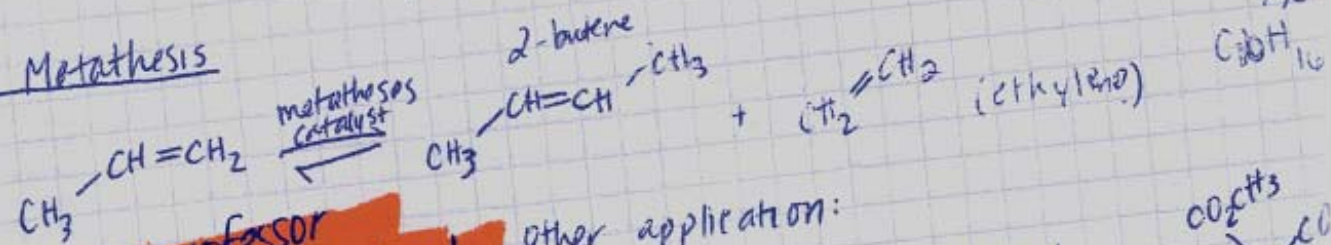 Metathesis
2-butene
CH3 CH=CH2 metatheses catalyst CH3 CH=CH CH3 + CH2=CH2 (ethylene)
other application:
CO2CH3